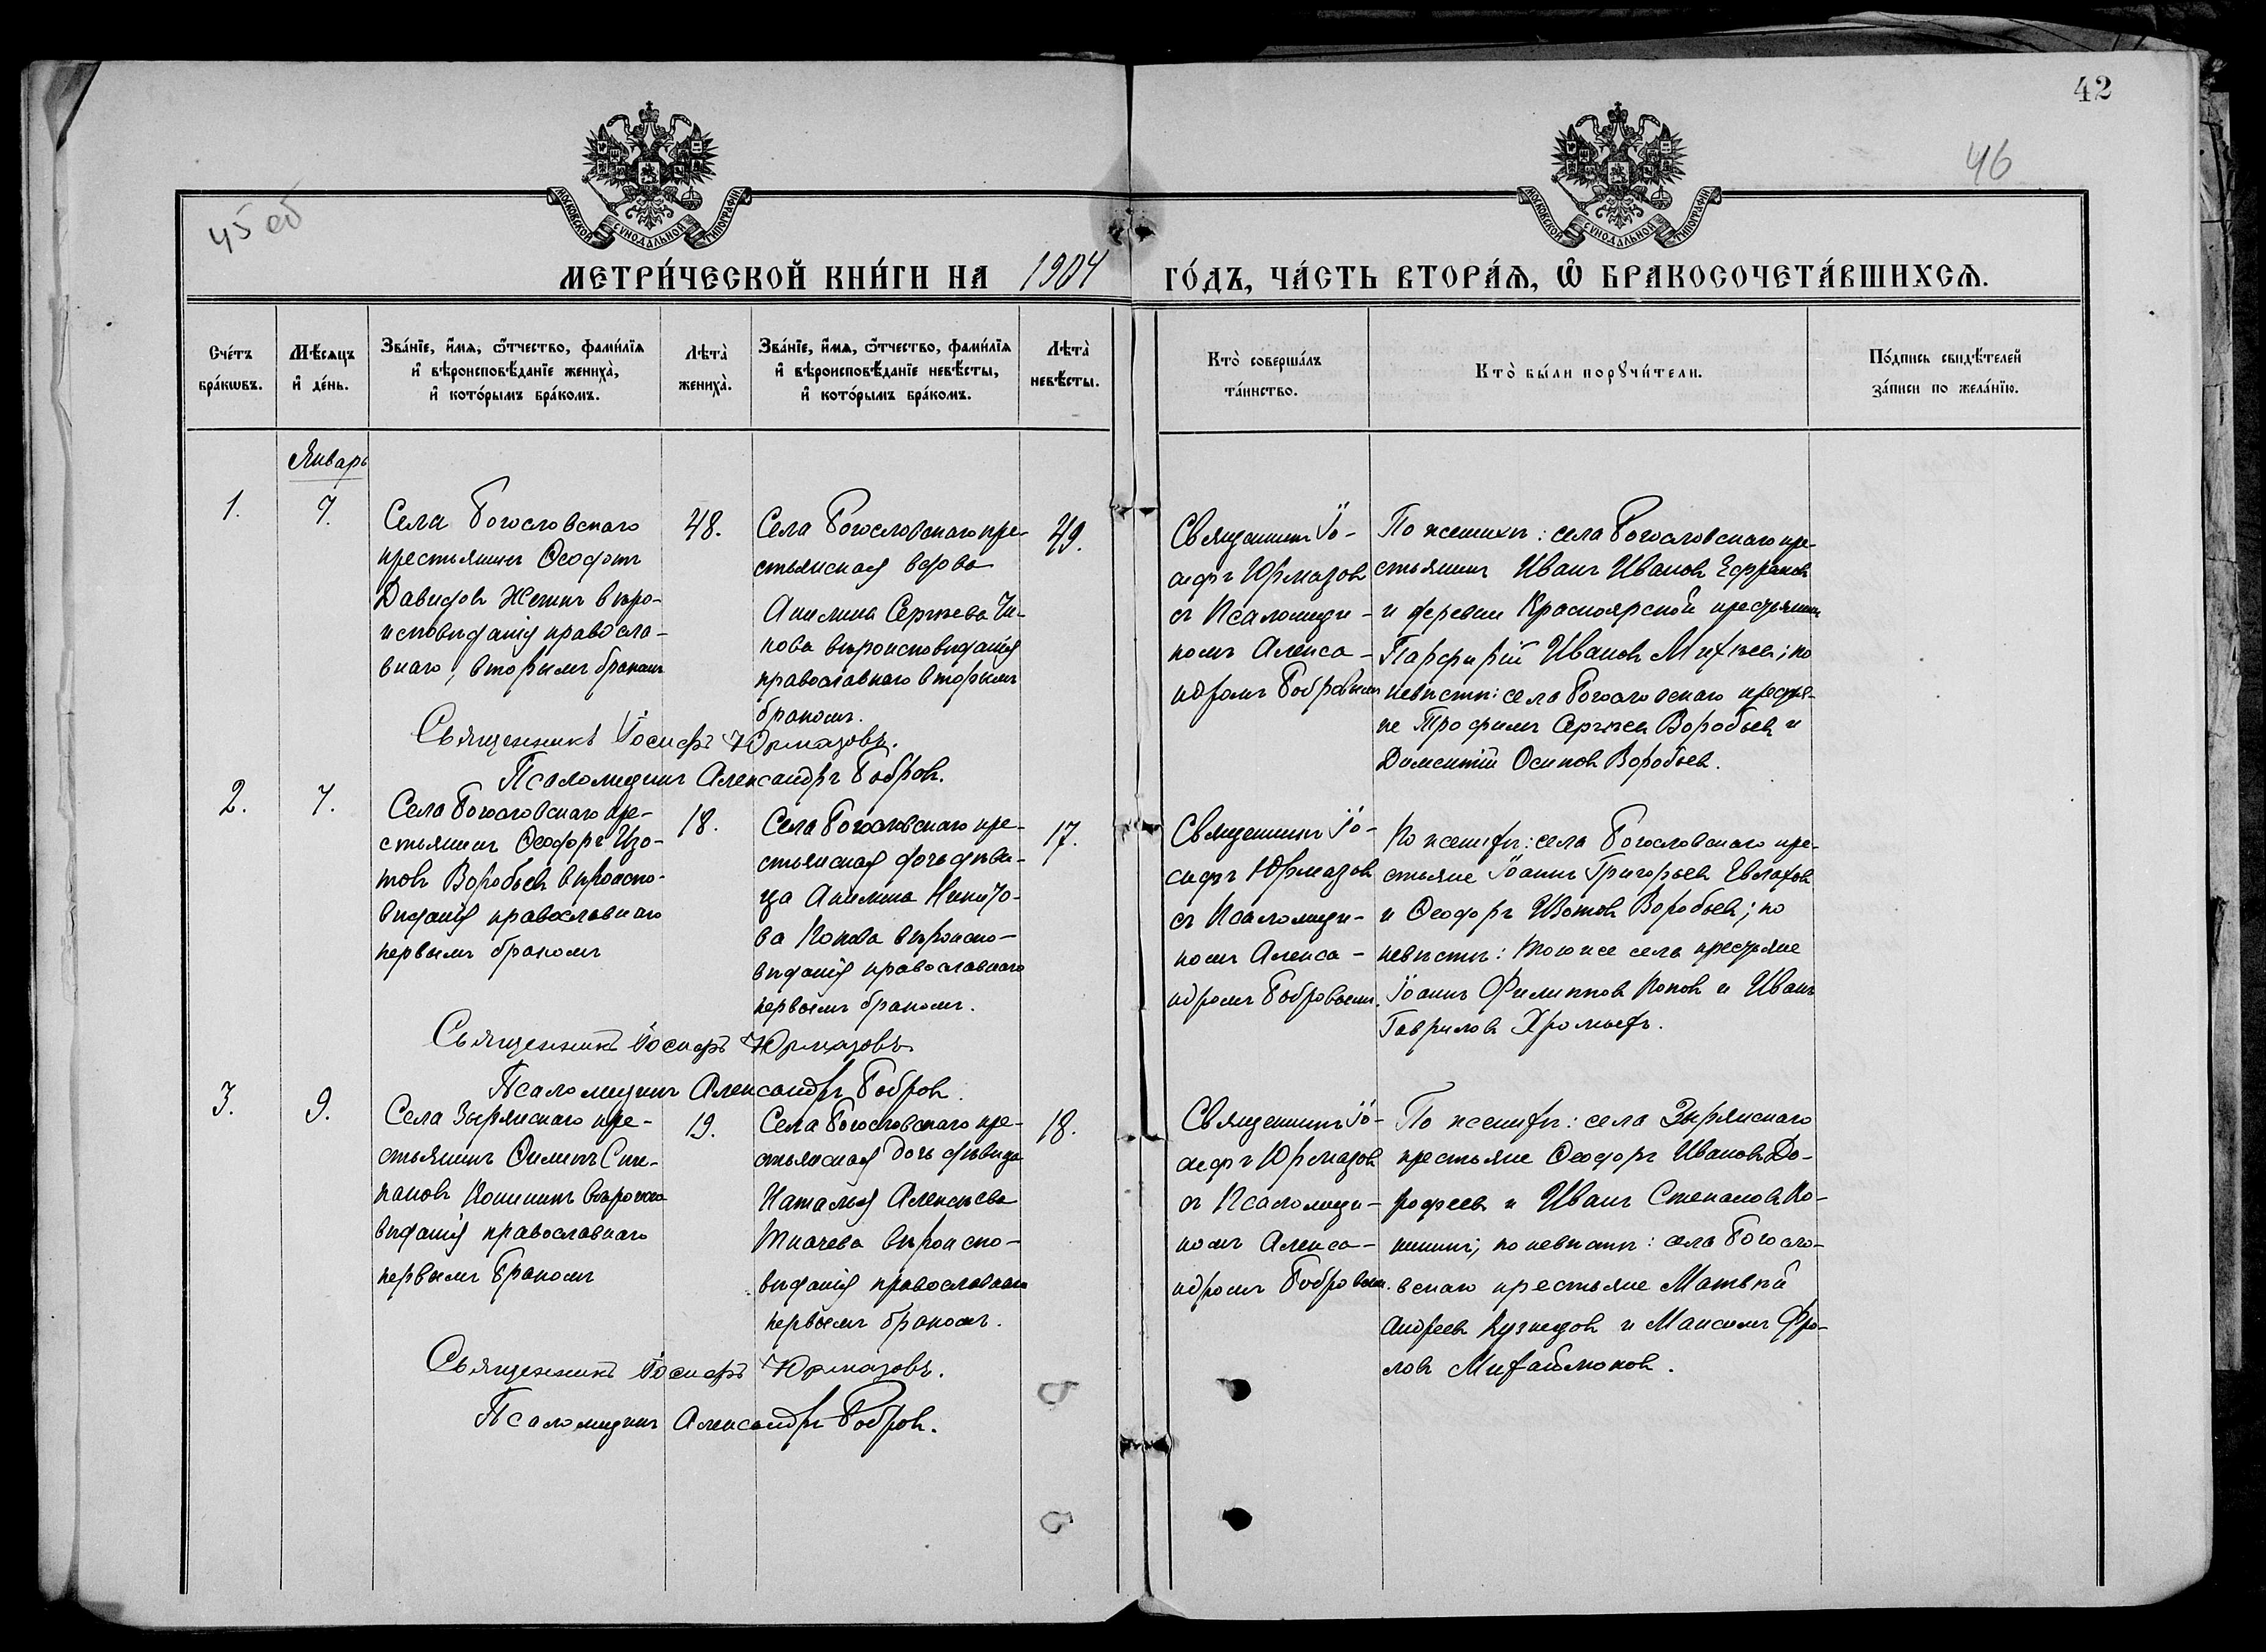 42
46
45 об
МОСКОВСКОЙ СѴНОДАЛЬНОЙ ТИПОГРАФІИ
МОСКОВСКОЙ СѴНОДАЛЬНОЙ ТИПОГРАФІИ
МЕТРИ́ЧЕСКОЙ КНИ́ГИ НА 1904 ГО́ДЪ, ЧА́СТЬ ВТОРА́Ѧ, Ѽ БРАКОСОЧЕТА́ВШИХСѦ.
Сче́тъ
бра́кѡвъ.
Мѣ́сяцъ
и҆ де́нь.
Зва́нїе, и҆́мѧ, ѻ҆́тчество, фами́лїѧ
и҆ вѣроисповѣ́данїе жениха̀,
и҆ кото́рымъ бра́комъ.
Лѣта̀
жениха̀.
Зва́нїе, и҆́мѧ, ѻ҆́тчество, фами́лїѧ
и҆ вѣроисповѣ́данїе невѣ́сты,
и҆ кото́рымъ бра́комъ.
Лѣта̀
невѣ́сты.
Кто̀ соверша́лъ
та́инство.
Кто̀ бы́ли порꙋчи́тели.
По́дпись свидѣ́телей
за́писи по жела́нїю.
Январь
1.
7.
Села Богословскаго
крестьянинъ Ѳеофотъ
Давидовъ Жетинъ вѣро-
исповѣданія правосла-
внаго, вторымъ бракомъ
48.
Села Богословскаго кре-
стьянская вдова
Акилина Сергѣева
православнаго вторымъ
бракомъ.
49.
Священникъ Іо-
сифъ Юрмазовъ
съ Псаломщи-
комъ Алекса-
ндромъ Бобровымъ
По женихѣ: села Богословскаго кре-
стьянинъ Иванъ Ивановъ
и деревни Красноярской крестьянинъ
Парфирій Ивановъ Михѣевъ; по
невѣстѣ: села Богословскаго крестья-
не Трофимъ Сергѣевъ Воробьевъ и
Дометтій Осиповъ Воробьевъ.
Священникъ Іосифъ Юрмазовъ.
Псаломщикъ Александръ Бобровъ.
2.
7.
Села Богословскаго кре-
стьянинъ Ѳеодоръ Изо-
товъ Воробьевъ вѣроиспо-
вѣданія православнаго
первымъ бракомъ
18.
Села Богословскаго кре-
стьянская дочь дѣви-
ца Акилина Никито-
ва Попова вѣроиспо-
вѣданія православнаго
первымъ бракомъ.
17.
Священникъ Іо-
сифъ Юрмазовъ
съ Псаломщи-
комъ Алекса-
ндромъ Бобровымъ.
По женихѣ: села Богословскаго кре-
стьяне Іоаннъ Григорьевъ Евлаховъ
и Ѳеодоръ Изотовъ Воробьевъ; по
невѣстѣ: того же села крестьяне
Іоаннъ Филипповъ Поповъ и Иванъ
Гавриловъ Хромыхъ.
Священникъ Іосифъ Юрмазовъ
Псаломщикъ Александръ Бобровъ.
3.
9.
Села Зырянскаго кре-
стьянинъ Филипъ Сте-
пановъ Конининъ вѣроиспо-
вѣданія православнаго
первымъ бракомъ
19.
Села Богословскаго кре-
стьянская дочь дѣвица
Наталія Алексѣева
Ткачева вѣроиспо-
вѣданія православнаго
первымъ бракомъ.
18.
Священникъ Іо-
сифъ Юрмазовъ
съ Псаломщи-
комъ Алекса-
ндромъ Бобровым.
По женихѣ: села Зырянскаго
крестьяне Ѳеодоръ Ивановъ До-
рофеевъ и Иванъ Степановъ Ко-
нининъ; по невѣстѣ: села Богосло-
вскаго крестьяне Матвѣй
Андреевъ Кузнецовъ и Максимъ Фро-
ловъ Михайлюковъ.
Священникъ Іосифъ Юрмазовъ.
Псаломщикъ Александръ Бобровъ.